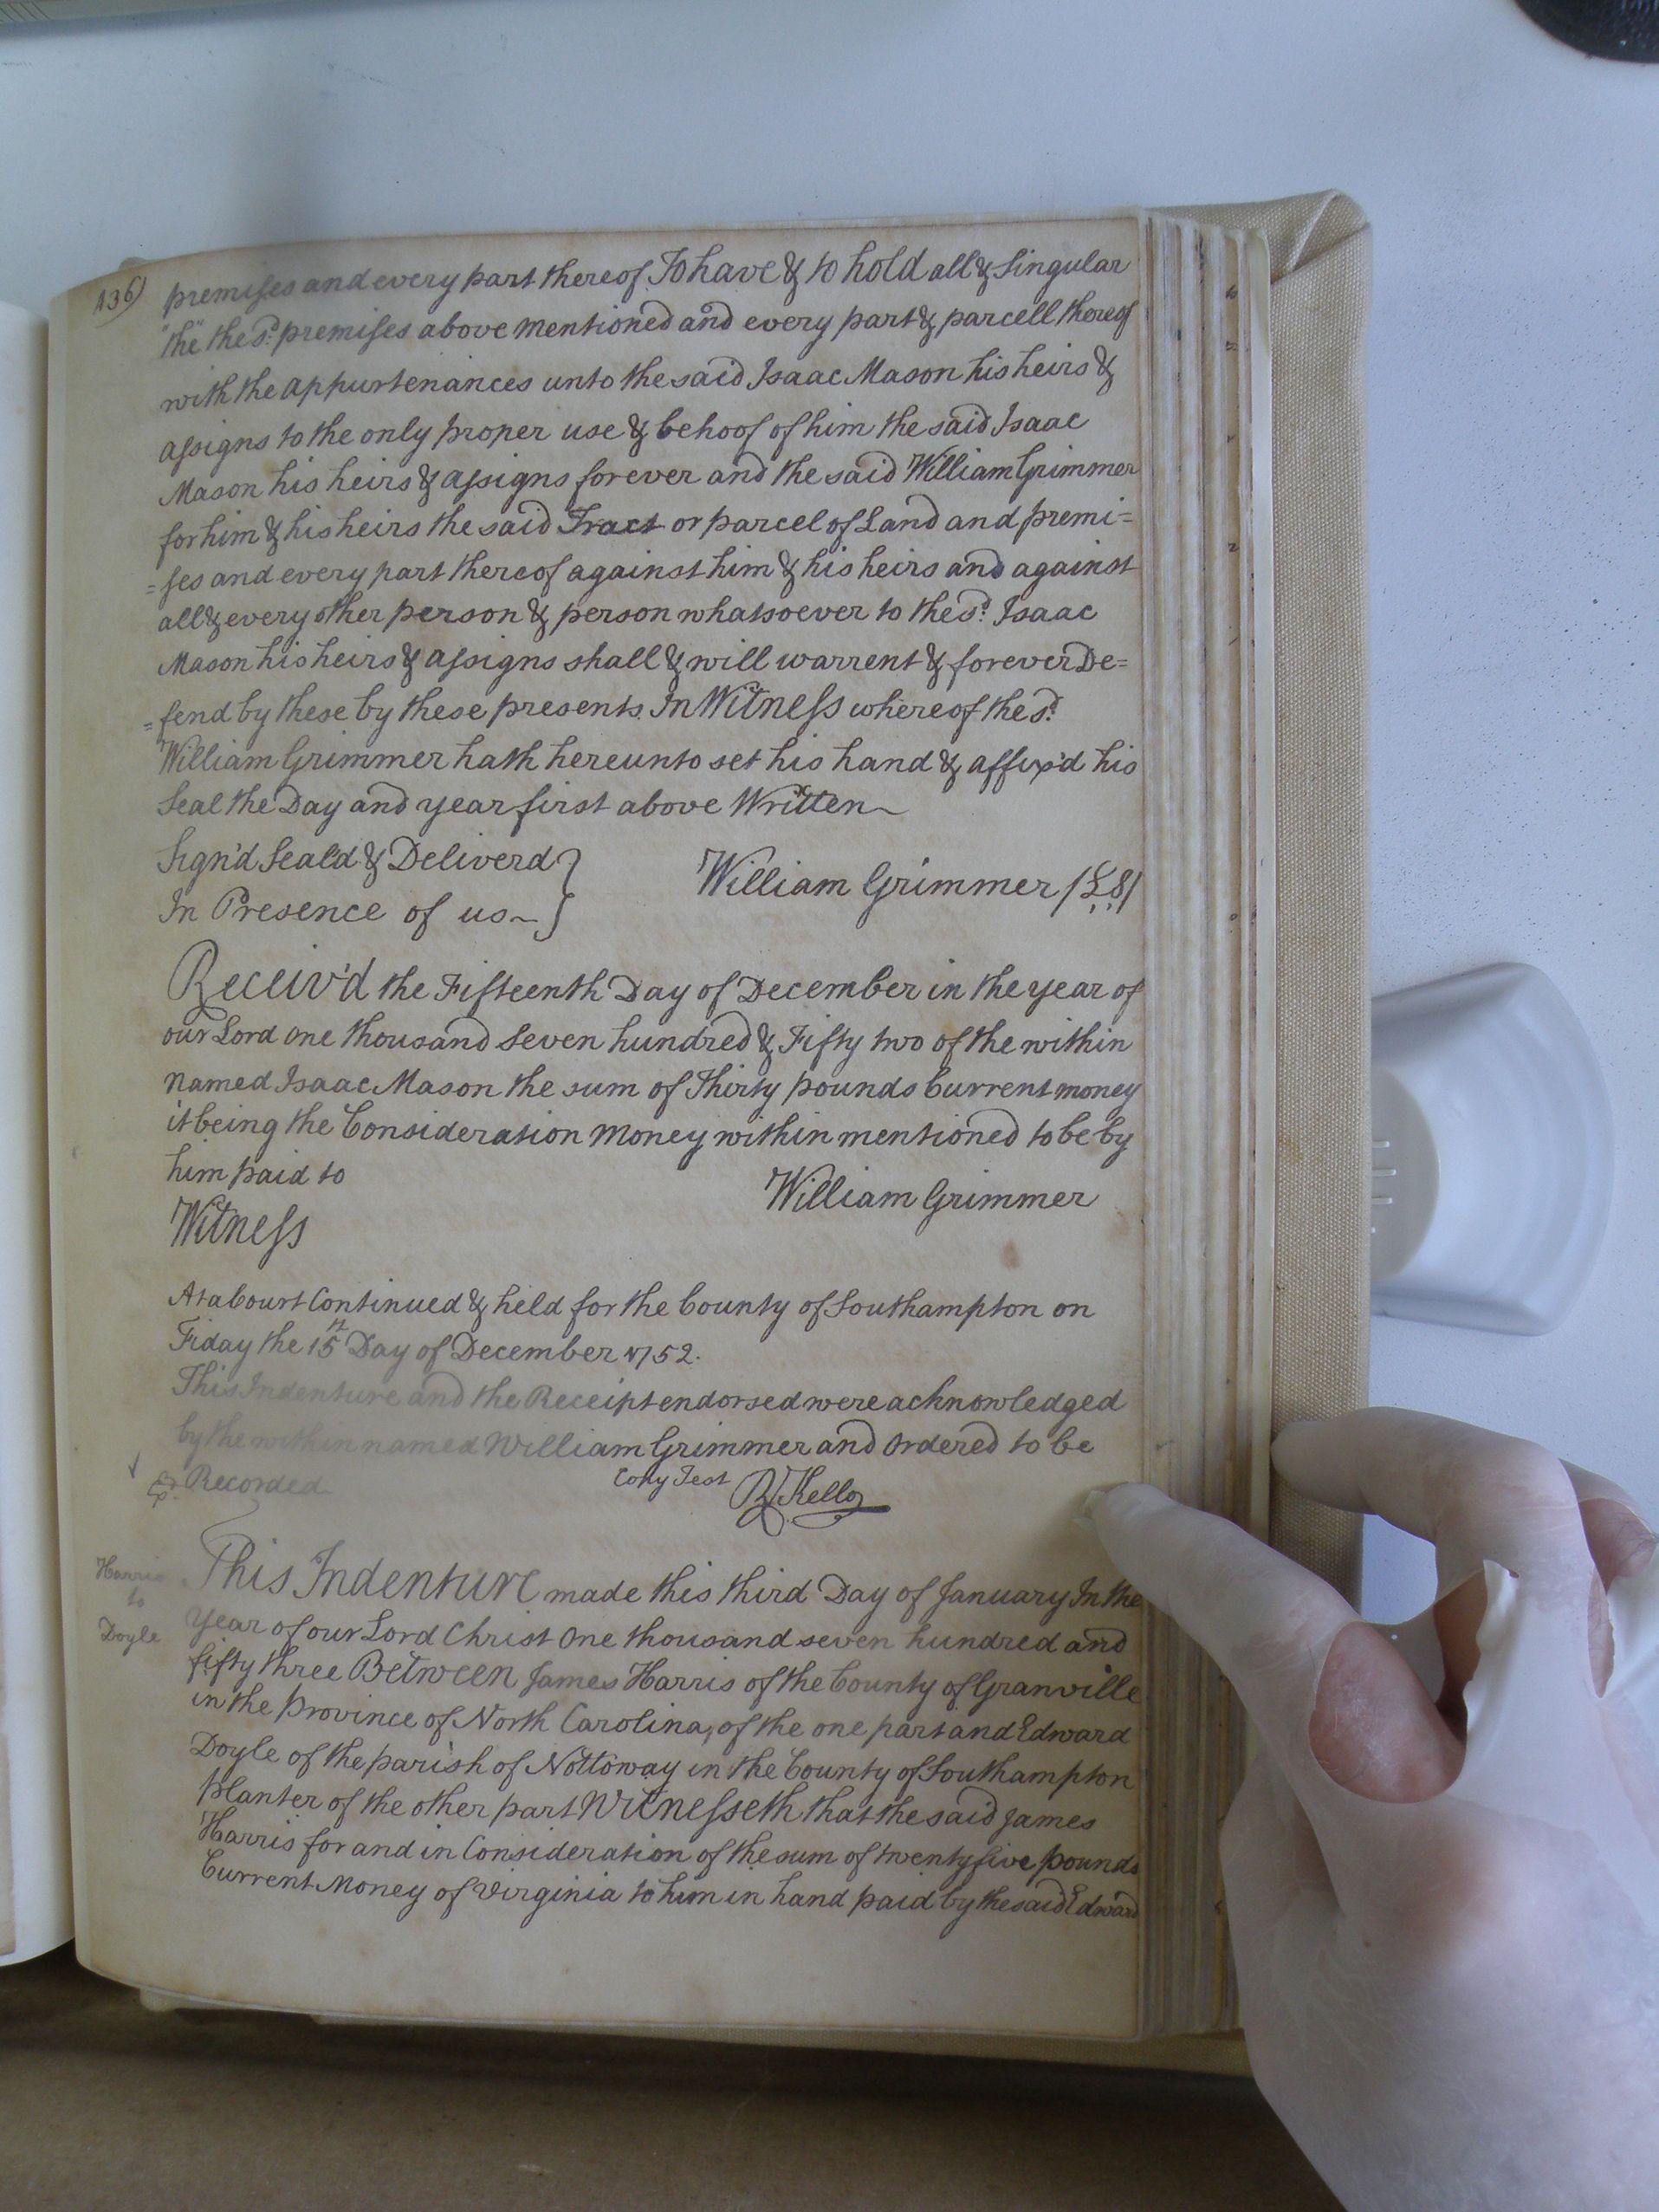 136)
premises and every part thereof. To have & to hold all & Singular
"the" the sd. premises above mentioned and every part & parcell thereof
with the appurtenances unto the said Isaac Mason his heirs &
assigns to the only proper use & behoof of him the said Isaac
Mason his heirs & assigns forever and the said William Grimmer
for him & his heirs the said Tract or parcel of Land and premi=
=ses and every part thereof against him & his heirs and against
all & every other person & person whatsoever to the sd. Isaac
Mason his heirs & assigns shall & will warrent & forever De=
=fend by these by these presents. In Witness whereof the sd.
William Grimmer hath hereunto set his hand & affix'd his
Seal the Day and year first above Written
Sign'd Seal'd & Deliverd }
In Presence of us }
William Grimmer (LS)
Receiv'd the Fifteenth Day of December in the year of
our Lord one thousand Seven hundred & Fifty two of the within
named Isaac Mason the sum of Thirty pounds Current money
it being the Consideration Money within mentioned to be by
him paid to
William Grimmer
Witness
At a Court Continued & held for the County of Southampton on
Fiday the 15th Day of December 1752.
This Indenture and the Receipt endorsed were acknowledged
by the within named William Grimmer and Ordered to be
Recorded
Copy Test R Kello
Harris
to
Doyle
This Indenture made this third Day of January In the
Year of our Lord Christ One thousand seven hundred and
fifty three Between James Harris of the County of Granville
in the Province of North Carolina, of the one part and Edward
Doyle of the parish of Nottoway in the County of Southampton
Planter of the other part Witnesseth that the said James
Harris for and in Consideration of the sum of twenty five pounds
Current Money of Virginia to him in hand paid by the said Edward